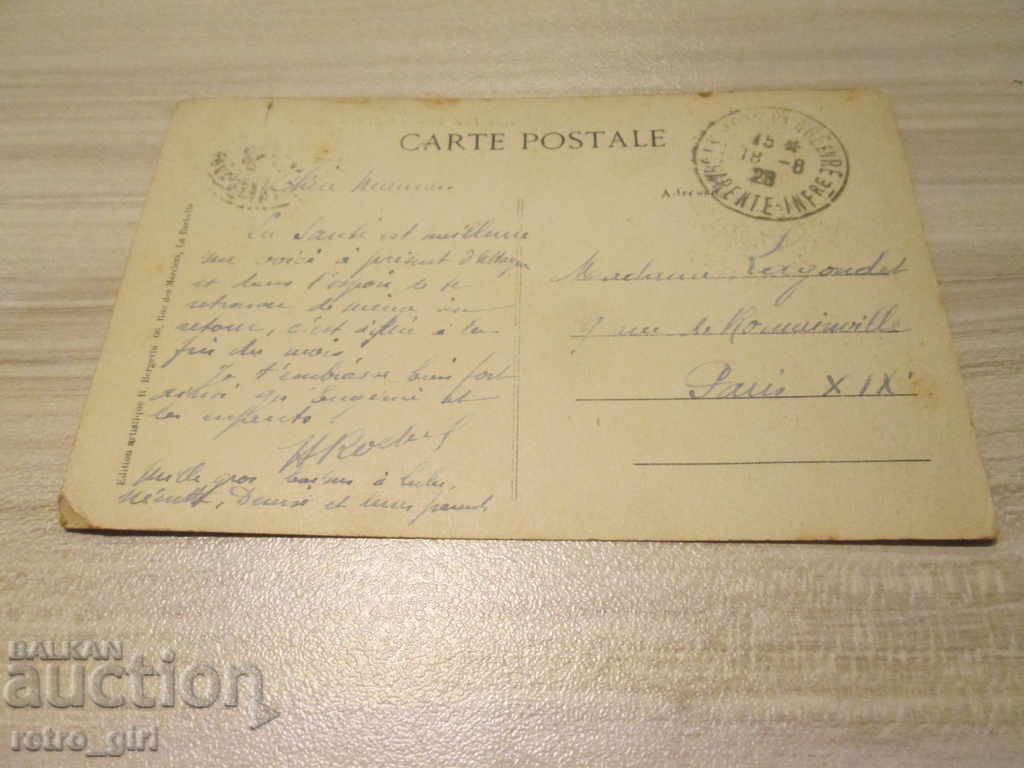 CARTE POSTALE
15 *
18 -8
28
CHARENTE-INFRE
Adresse
Edition artistique R. Bergevin 66, Rue des Merciers, La Rochelle
Chère Maman
La Santé est meilleure
me voici à présent
et dans l'espoir de te
retrouver de même au
retour, c'est à la
fin du mois.
Je t'embrasse bien fort
ainsi que Eugénie et
les enfants.
gros baisers à Lulu,
et aux parents
Madame Lagoudet
9 rue de Romainville
Paris XIXe
BALKAN
auction
retro_girl